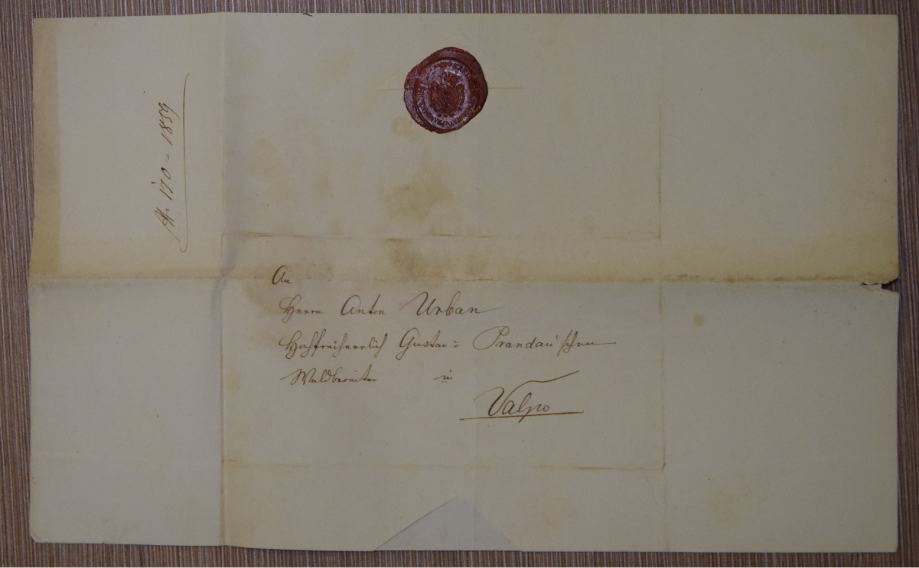 № 170 - 1859
An
Herrn Anton Urban
Hochfreiherrlich Gustav= Prandau'schen
Waldbereiter in
Valpo